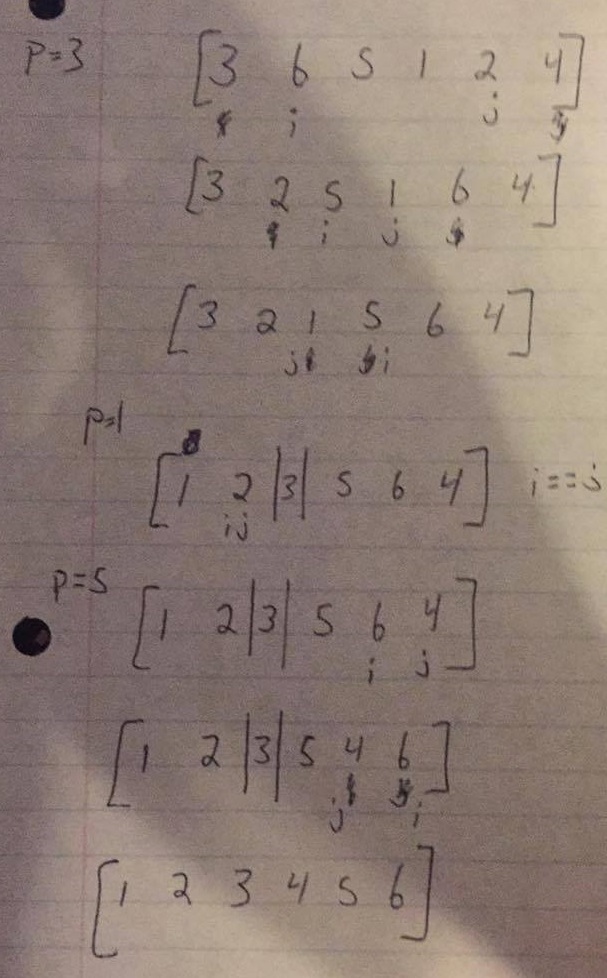 p=3 [3 6 5 1 2 4]
i j
[3 2 5 1 6 4]
i j
[3 2 1 5 6 4]
j i
p=1
[1 2 |3| 5 6 4] i==j
i j
p=5 [1 2 |3| 5 6 4]
i j
[1 2 |3| 5 4 6]
j i
[1 2 3 4 5 6]